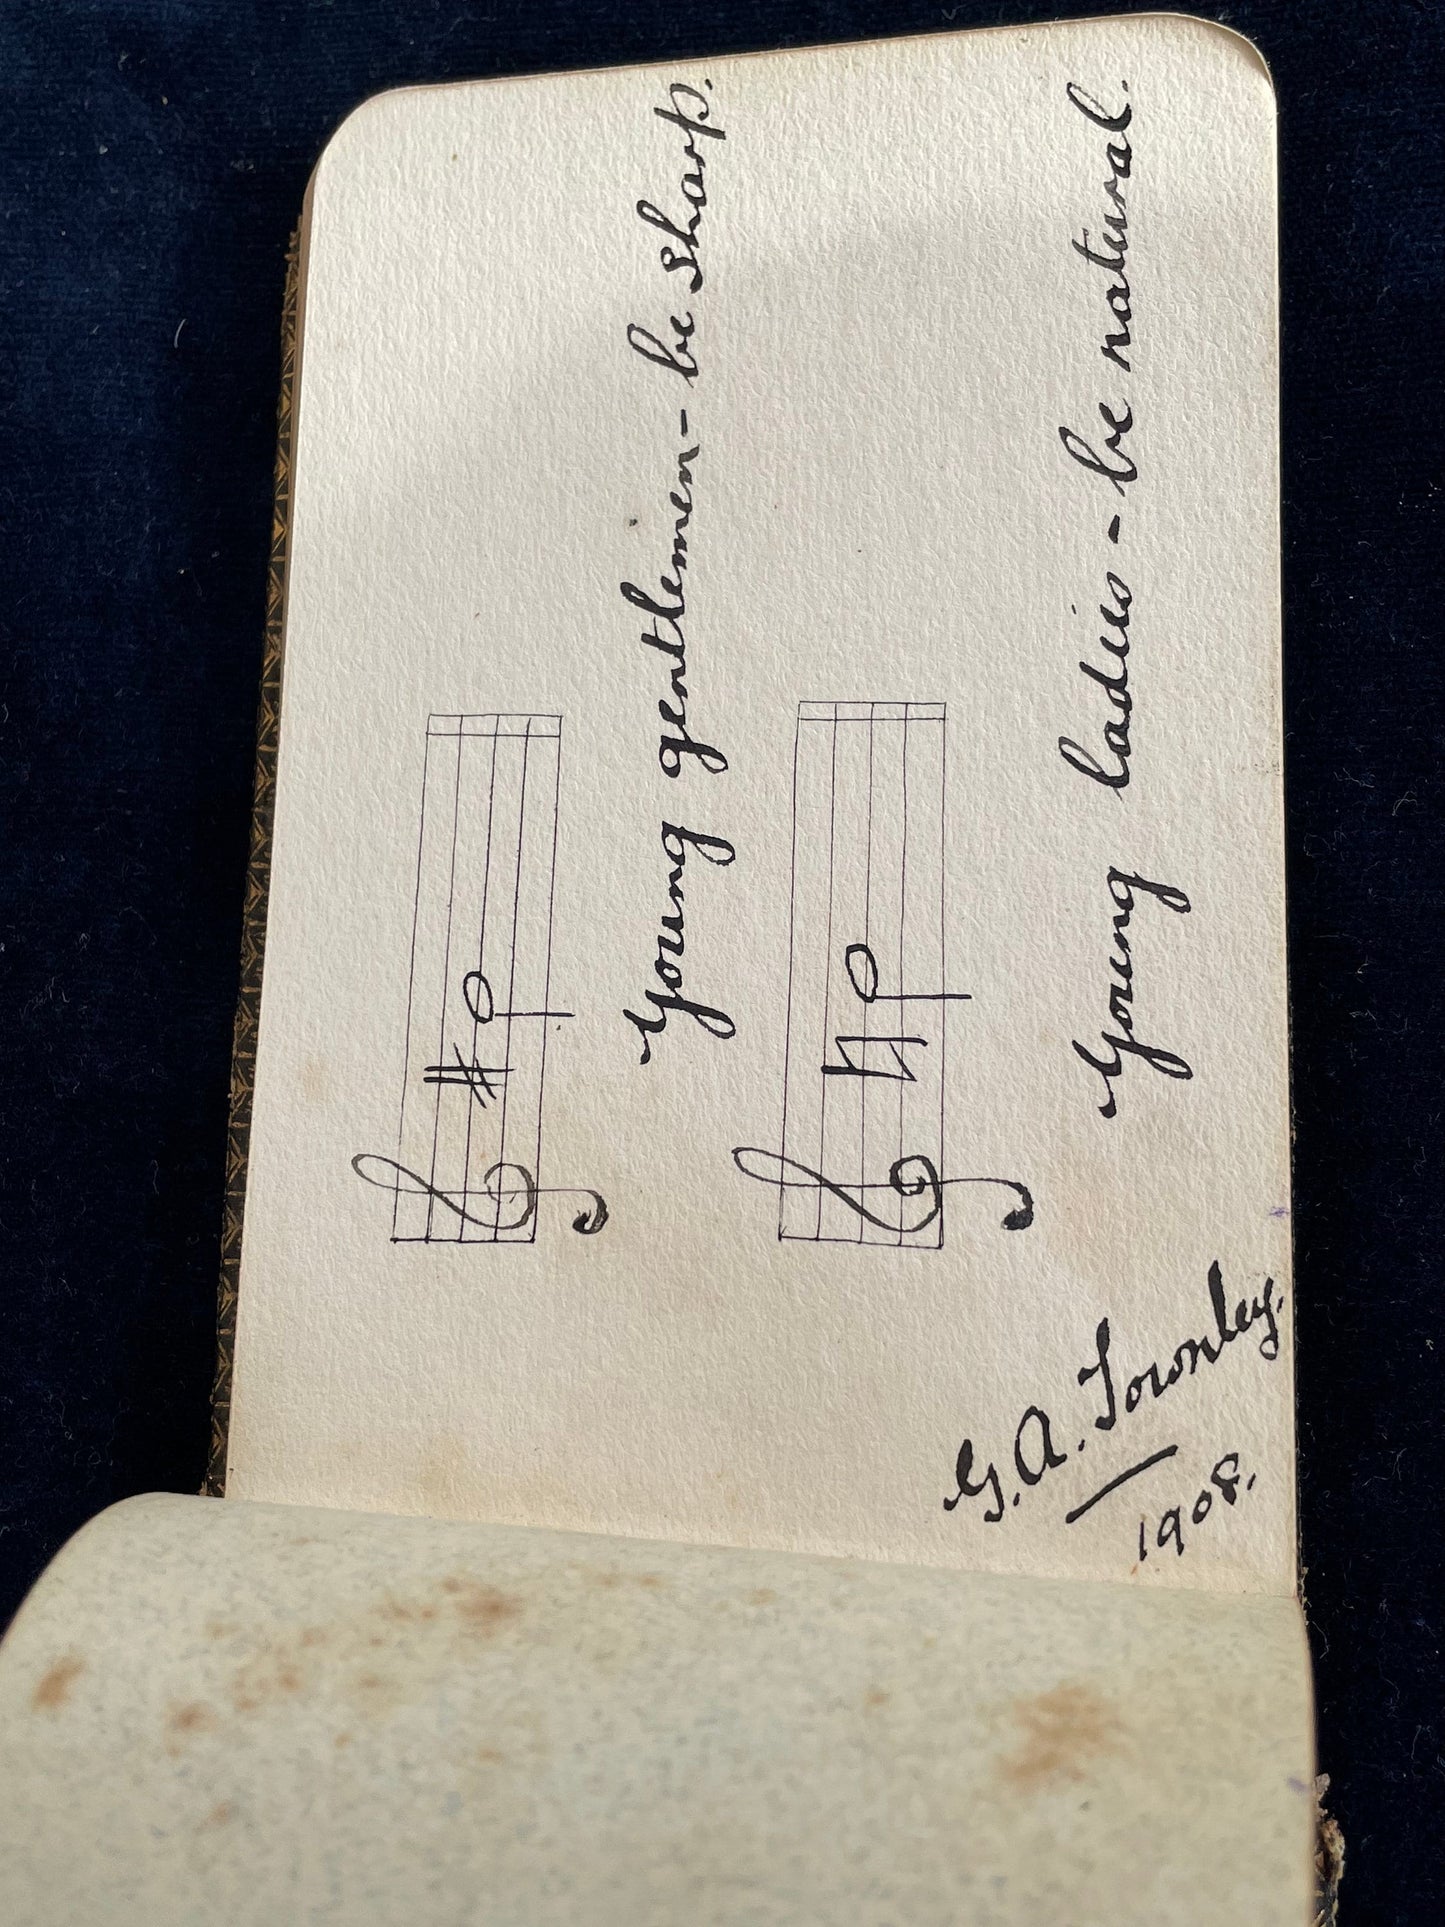 Young gentlemen - be sharp.
Young ladies - be natural.
G. A. Townley.
1908.